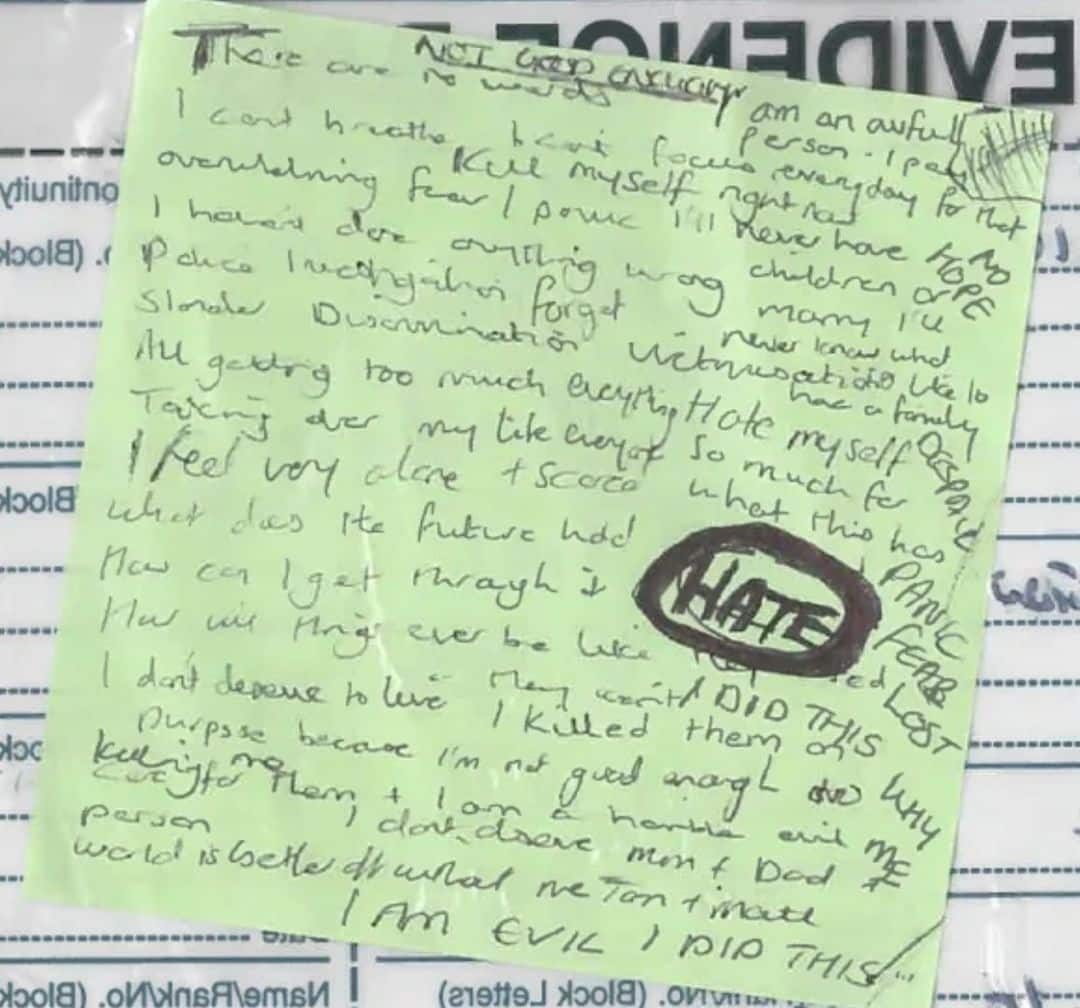 NOT GOOD ENOUGH
There are no words
I am an awful person - I pay everyday for that right now
I cant breathe I cant focus
Kill myself
overwhelming fear / panic I'll never have
children or marry I'll never know what
its like to have a family
NO HOPE
I haven't done anything wrong
Police investigation forget
Slander Discrimination Victimisation
All getting too much everything
Hate myself so much for what this has
Taking over my life everyone
I feel very alone + scared
What does the future hold
How can I get through it
HATE
How will things ever be like
DESPAIR
PANIC
FEAR
LOST
WHY ME
I don't deserve to live
They won't
I DID THIS
I killed them on purpose because I'm not good enough to
care for them + I am a horrible evil person
killing me
I don't deserve mum + Dad
world is better off without me
I AM EVIL I DID THIS
EVIDENCE
Continuity
Name/Rank/No. (Block Letters)
Date